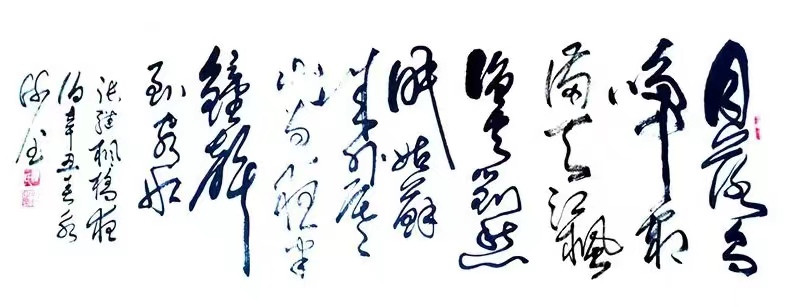 月落烏
啼霜
滿天江楓
漁火對愁
眠姑蘇
城外寒
山寺夜半
鐘聲
到客船
張繼楓橋夜
泊辛丑